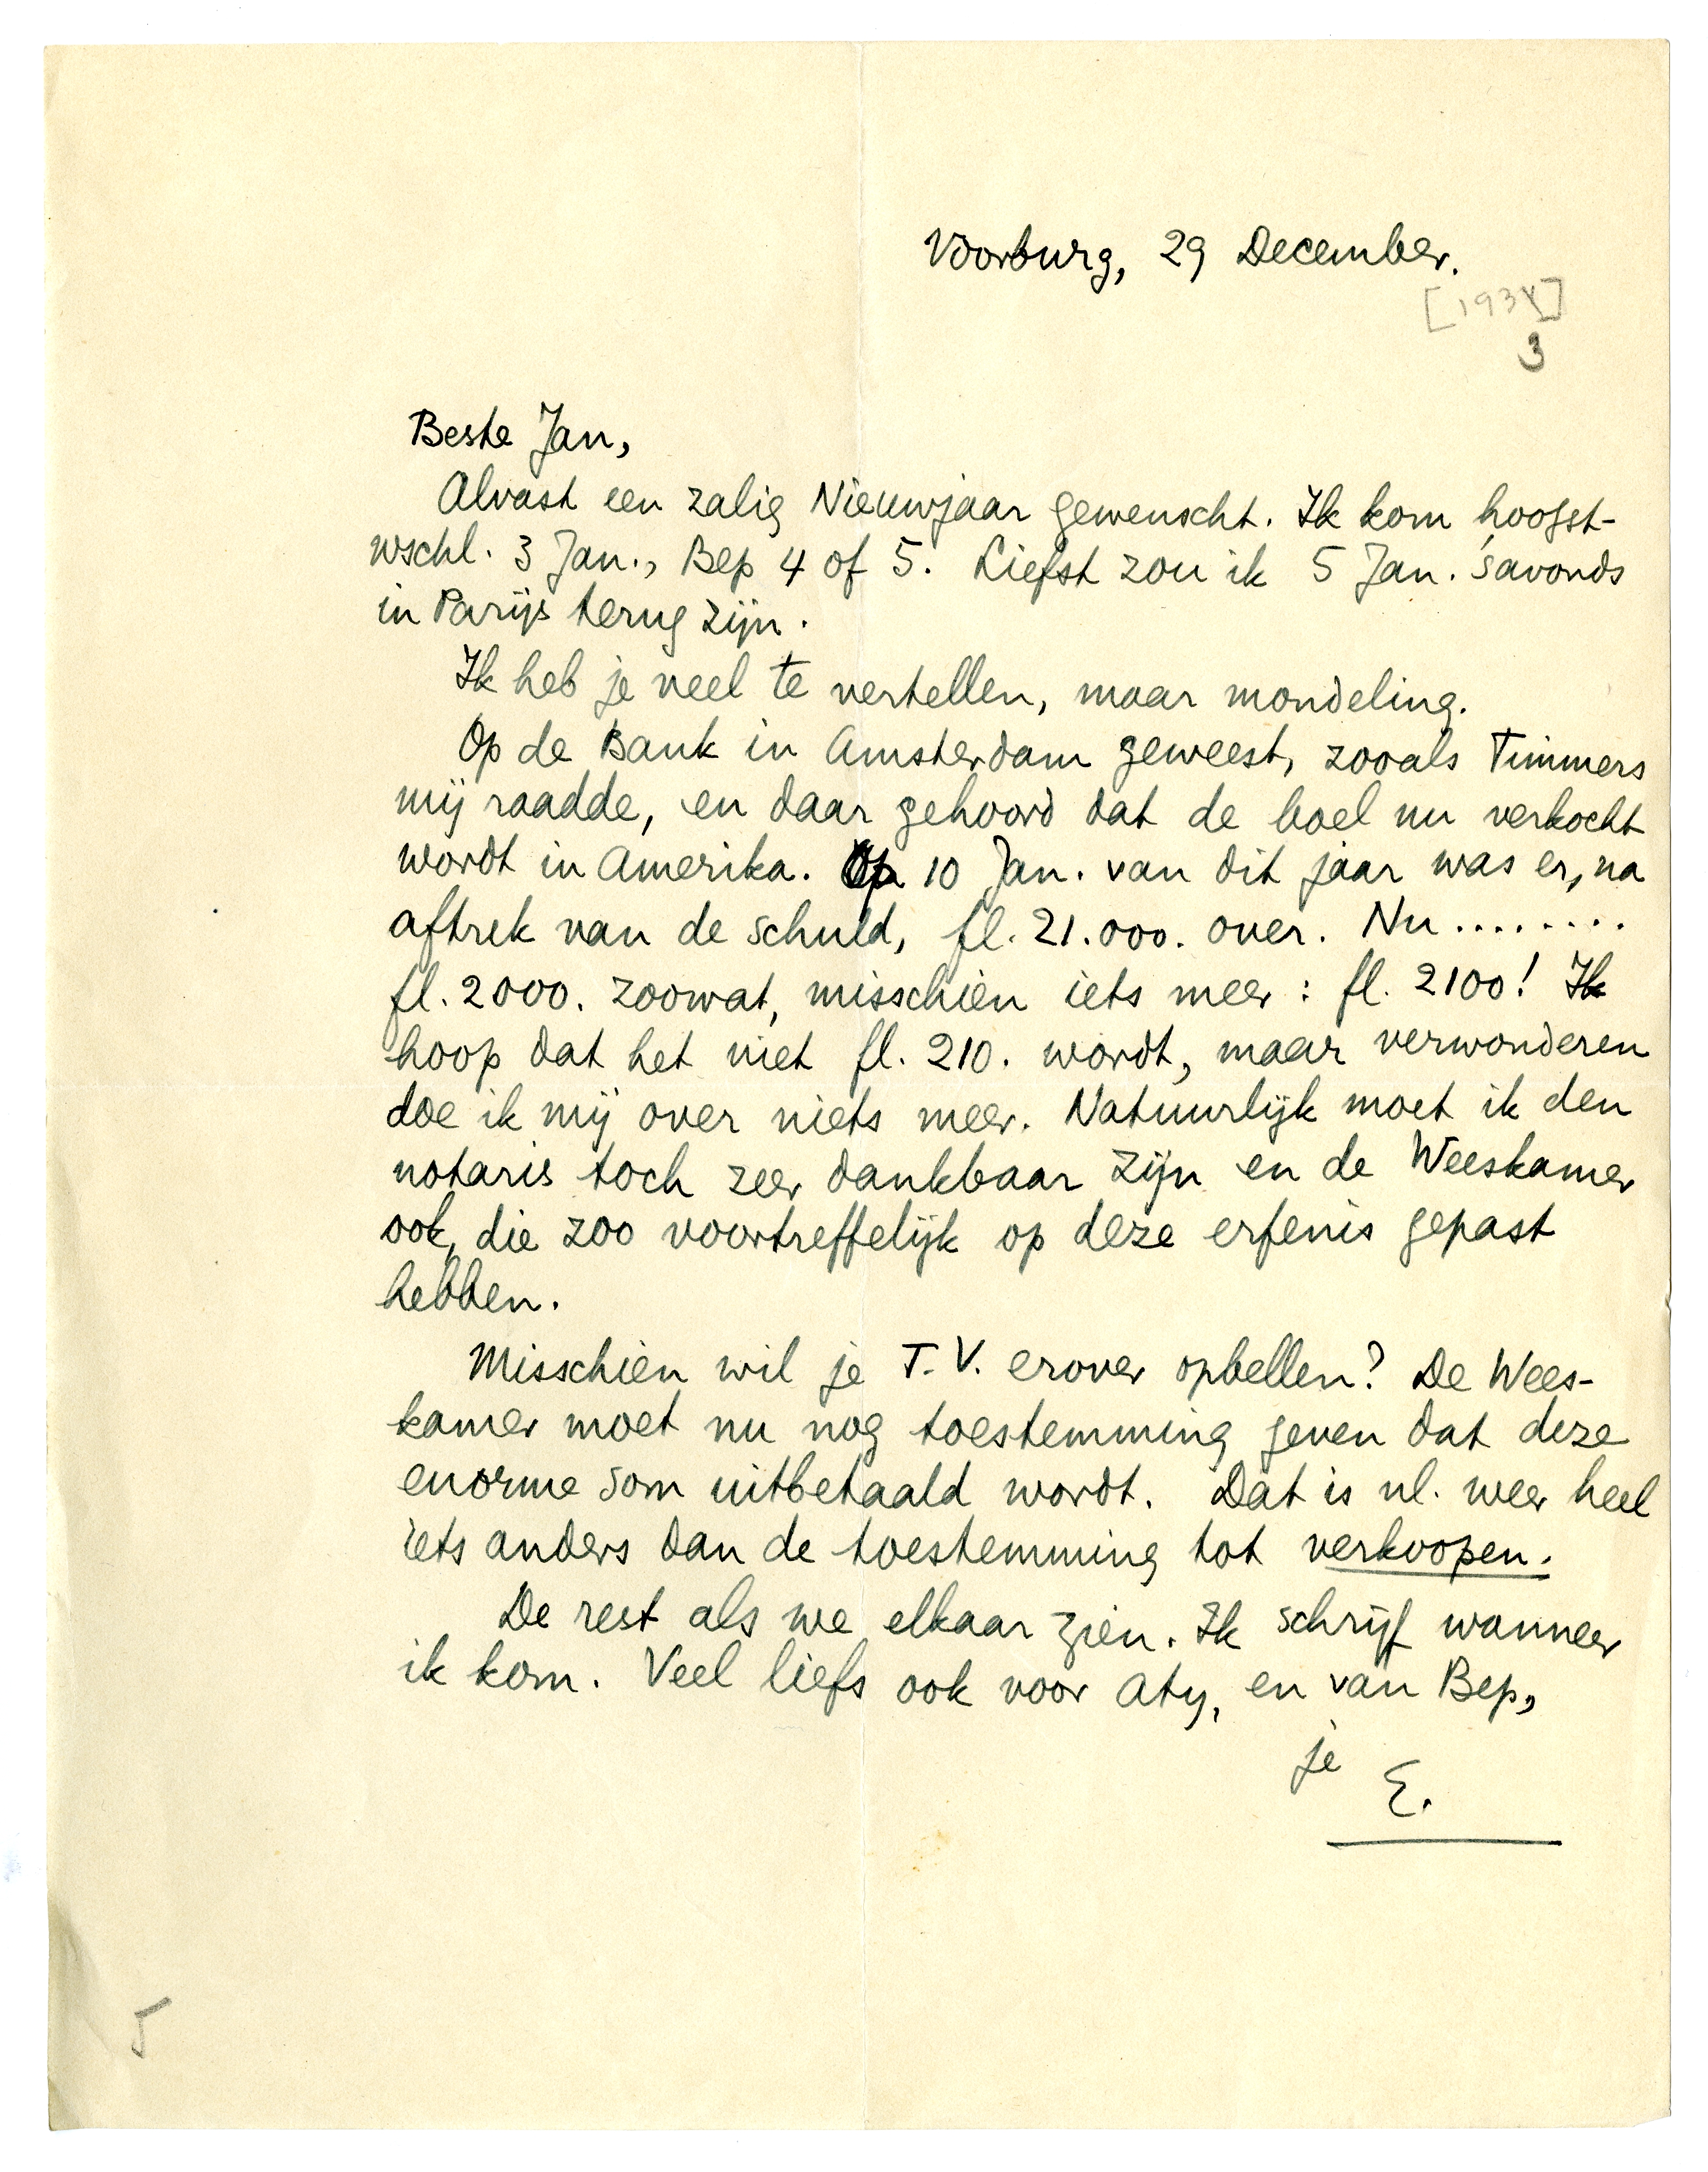 Voorburg, 29 December.
[193X]
3
Beste Jan,
Alvast een zalig Nieuwjaar gewenscht. Ik kom hoogst-
wschl. 3 Jan., Bep 4 of 5. Liefst zou ik 5 Jan. 's avonds
in Parijs terug zijn.
Ik heb je veel te vertellen, maar mondeling.
Op de Bank in Amsterdam geweest, zooals Timmers
mij raadde, en daar gehoord dat de boel nu verkocht
wordt in Amerika. Op 10 Jan. van dit jaar was er, na
aftrek van de schuld, fl. 21.000. over. Nu ........
fl. 2000. zoowat, misschien iets meer: fl. 2100! Ik
hoop dat het niet fl. 210. wordt, maar verwonderen
doe ik mij over niets meer. Natuurlijk moet ik den
notaris toch zeer dankbaar zijn en de Weeskamer
ook, die zoo voortreffelijk op deze erfenis gepast
hebben.
Misschien wil je T.V. erover opbellen? De Wees-
kamer moet nu nog toestemming geven dat deze
enorme som uitbetaald wordt. Dat is nl. weer heel
iets anders dan de toestemming tot verkoopen.
De rest als we elkaar zien. Ik schrijf wanneer
ik kom. Veel liefs ook voor Aty, en van Bep,
je
E.
5